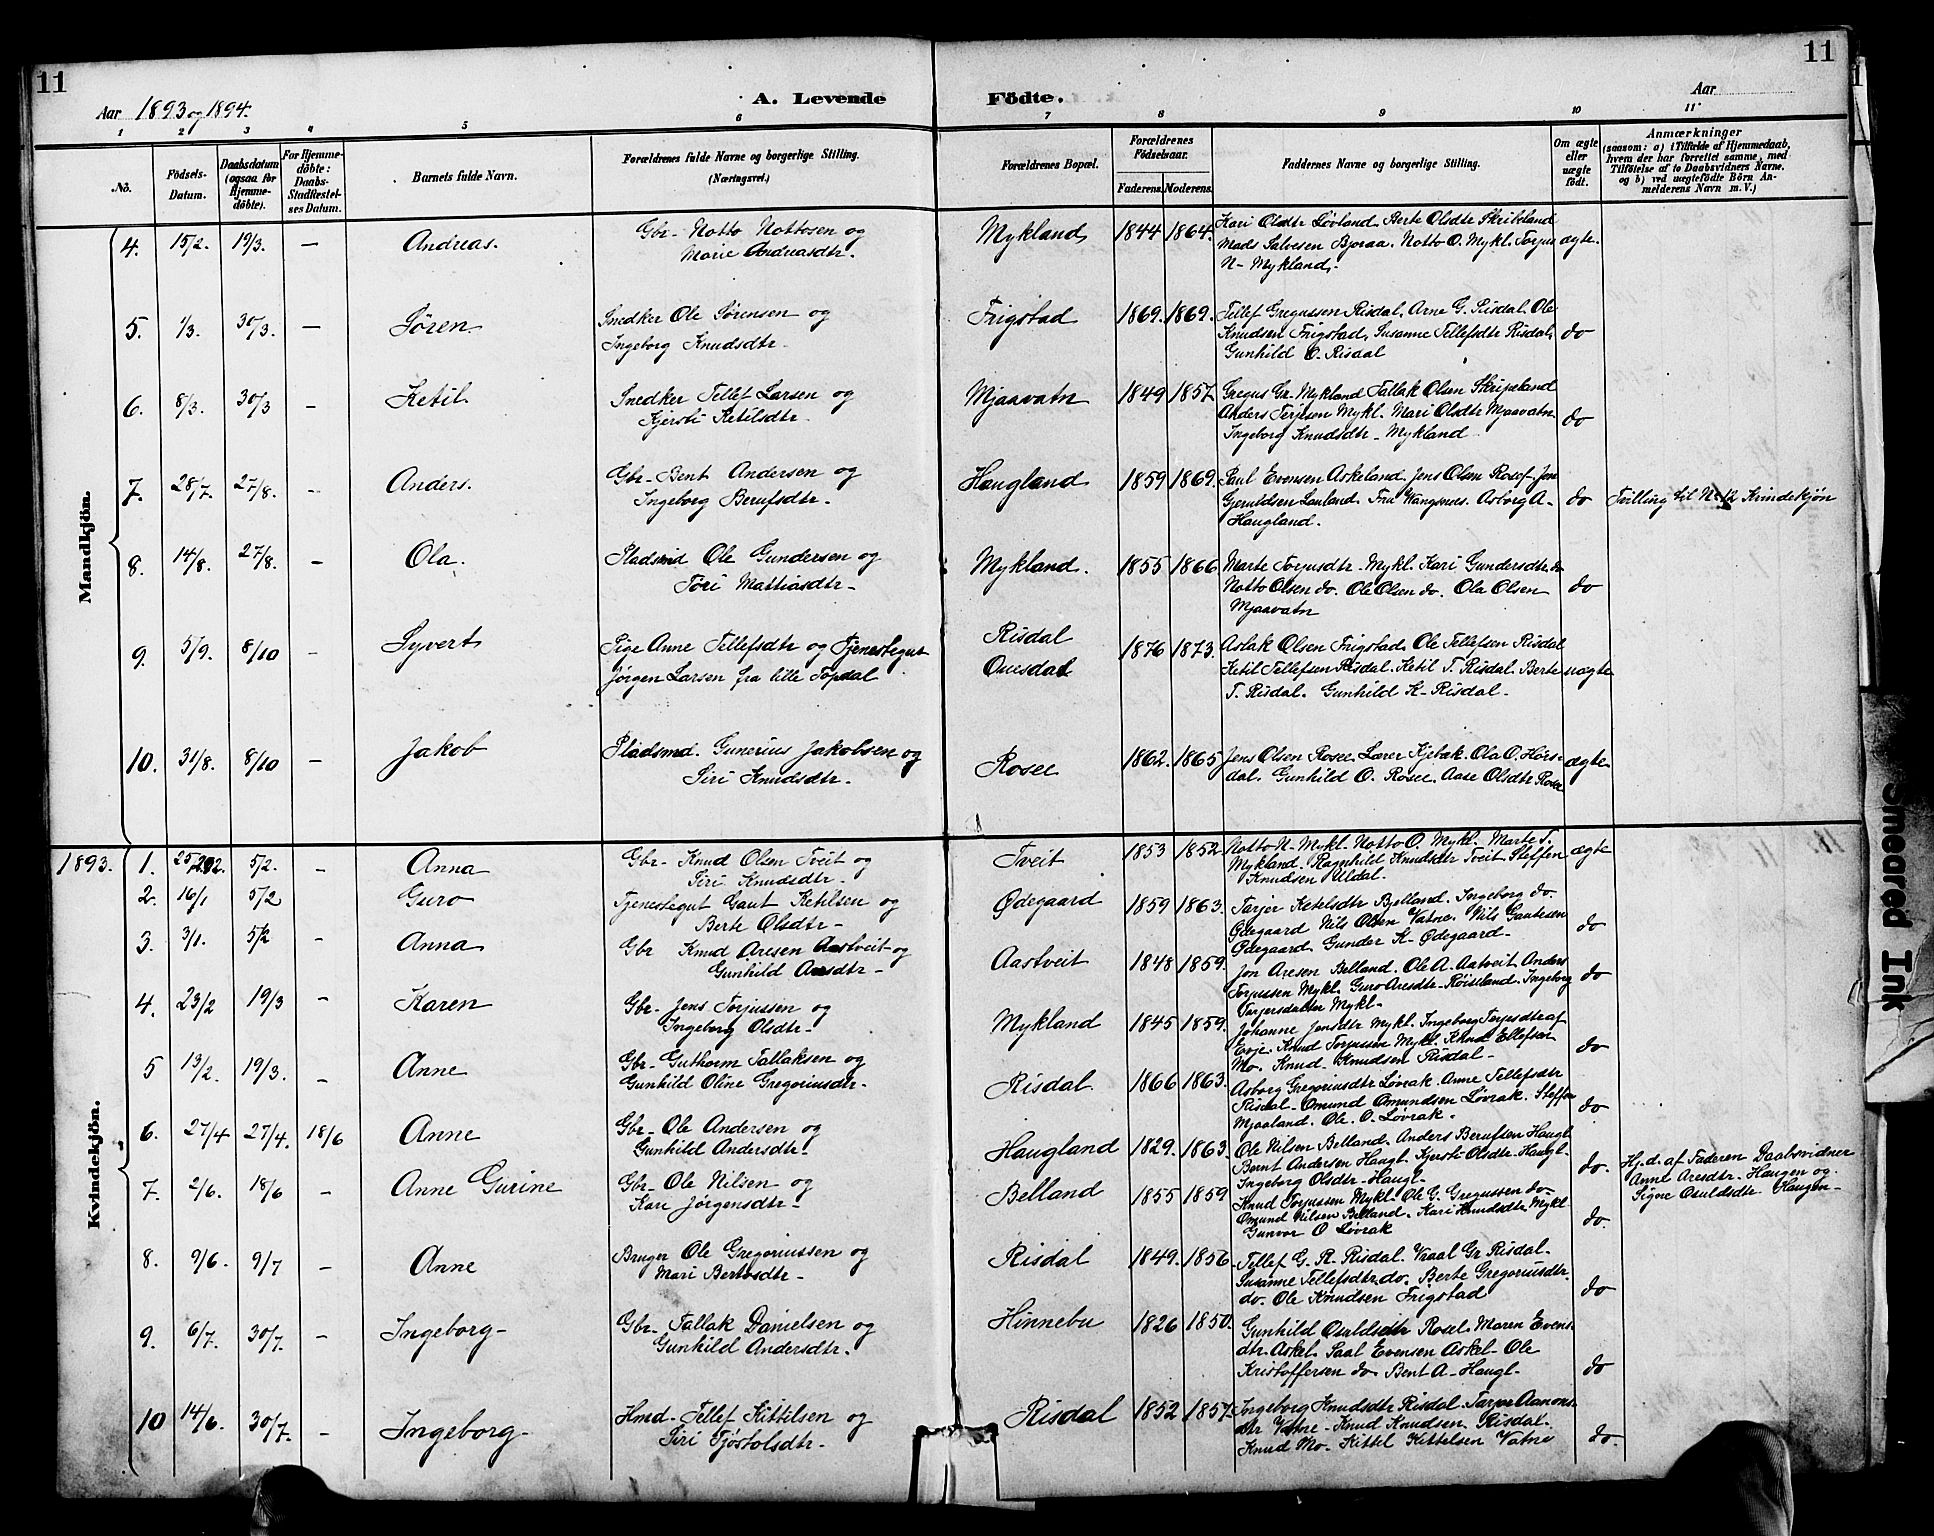 11
11
Aar 1893 og 1894.
A. Levende Födte.
Aar
1 2 3 4 5 6 7 8 9 10 11
No.
Födsels-Datum.
Daabsdatum (ogsaa for Hjemme-döbte).
For Hjemme-döbte: Daabs-Stadfæstelses Datum.
Barnets fulde Navn.
Forældrenes fulde Navne og borgerlige Stilling. (Næringsvei.)
Forældrenes Bopæl.
Forældrenes Födselsaar.
Faderens. Moderens.
Faddernes Navne og borgerlige Stilling.
Om ægte eller uægte födt.
Anmærkninger
(saasom: a) i Tilfælde af Hjemmedaab, hvem der har forrettet samme, med Tilföielse af to Daabsvidners Navne, og b) ved uægtefödte Börn Anmelderens Navn m. V.)
Mandkjön.
4. 15/2. 19/3. — Andreas. Gbr- Notto Nottosen og Marie Andreasdtr. Mykland 1844 1864. Kari Olsdtr Løvland. Berte Olsdtr Skribeland
Mads Salvesen Bjoraa. Notto O. Mykl. Torjus ægte.
N- Mykland.
5. 1/3. 30/3. — Søren. Snedker Ole Sørensen og Ingeborg Knudsdtr. Frigstad 1869. 1869. Tellef Gregussen Risdal. Arne G. Risdal. Ole
Knudsen Frigstad. Susanne Tellefsdtr Risdal. do
Gunhild O. Risdal
6. 8/3. 30/3 — Ketil. Snedker Tellef Larsen og Kjersti Ketilsdtr. Mjaavatn 1849 1857. Gregus Gr. Mykland Tallak Olsen Skripeland
Anders Terjesen Mykl. Mari Olsdtr Mjaavatn. do
Ingeborg Knudsdtr- Mykland
7. 28/7. 27/8. — Anders. Gbr- Bent Andersen og Ingeborg Berufsdtr. Haugland 1859 1869. Saul Evensen Askeland. Jens Olsen Rosef. Jon
Gjeruldsen Lauland. Fru Wangsnes. Asborg A- do Tvilling til No 12 Kvindekjøn
Haugland.
8. 14/8. 27/8. — Ola. Pladsmd Ole Gundersen og Tori Mathiasdtr- Mykland. 1855 1866 Marte Torjusdtr- Mykl. Kari Gundersdtr. do
Notto Olsen do. Ole Olsen do. Ola Olsen do
Mjaavatn
9. 5/9. 8/10 — Syvert Pige Anne Tellefsdtr og Tjenestegut Jørgen Larsen fra lille Topdal Risdal Ouesdal 1876 1873. Aslak Olsen Frigstad. Ole Tellefsen Risdal
Ketil Tellefsen Risdal. Ketil T. Risdal. Berte uægte
T. Risdal. Gunhild K- Risdal-
10. 31/8. 8/10 — Jakob Pladsmd. Gunerius Jakobsen og Siri Knudsdtr. Rosee 1862. 1865 Jens Olsen Rosee. Lærer Kjebæk. Ola O. Hørsdal. Gunhild O. Rosee. Aase Olsdtr Rosee ægte
Kvindekjön.
1893. 1. 5/2. — Anna Gbr- Knud Olsen Tveit og Siri Knudsdtr- Tveit 1853 1852 Notto N- Mykl. Notto O. Mykl. Marte T.
Mykland. Ragnhild Knudsdtr Tveit Steffen ægte
Knudsen Uldal.
2. 16/1 5/2 Guro Tjenestegut Gaut Ketilsen og Berte Olsdtr- Ødegaard 1859 1863. Tarjer Ketelsdtr Bjelland. Ingeborg do.
Ødegaard Nils Olsen Vatne. Nils Gautesen do
Ødegaard. Gunder K- Ødegaard-
3. 3/1. 5/2 — Anna Gbr Knud Aresen Aastveit og Gunhild Aresdtr- Aastveit 1848 1859. Jon Aresen Belland. Ole A. Aatveit Anders
Torjussen Mykl. Guro Aresdtr- Røiseland. Ingeborg do
Terjersdatter Mykl-
4. 23/2 19/3 — Karen Gbr- Jens Torjussen og Ingeborg Olsdtr- Mykland 1845 1859. Johanne Jensdtr Mykl. Ingeborg Terjesdtr af
Evje. Knud Torjussen Mykl. Knud Ellefsen do
Mo. Knud Knudsen Risdal-
5 13/2. 19/3. — Anne Gbr- Guthorm Tallaksen og Gunhild Oline Gregoriusdtr. Risdal 1866 1863. Asborg Gregoriusdtr Løvrak. Anne Tellefsdtr
Risdal- Omund Omundsen Løvrak. Steffen do
Mjaaland. Ole. O. Løvrak-
6. 27/4 27/4. 18/6 Anne Gbr- Ole Andersen og Gunhild Andersdtr. Haugland 1829. 1863. Ole Nilsen Belland. Anders Berufsen Haugl.
Bernt Andersen Haugl. Kjersti Olsdtr- Haugl. do. Hj.d. af Faderen Daabsvidner
Ingeborg Olsdtr- Haugl- Anne Aresdtr- Haugen og Signe Osuldsdtr- Haugen-
7. 2/6. 18/6 — Anne Gurine Gbr- Ole Nilsen og Kari Jørgensdtr- Belland 1855 1859 Knud Torjussen Mykl. Ole G. Gregussen do-
Omund Nilsen Belland. Kari Knudsdtr Mykl do.
Gunvor O Løvrak
8. 9/6. 9/7 — Anne Bruger Ole Gregoriussen og Mari Bertosdtr- Risdal 1849. 1856. Tellef G. R. Risdal. Vraal Gr Risdal-
Susanne Tellefsdtr do. Berte Gregoriusdtr. do
do. Ole Knudsen Frigstad
9. 6/7. 30/7. — Ingeborg- Gbr- Tallak Danielsen og Gunhild Andersdtr. Hinnebu 1826 1850. Gunhild Osuldsdtr Rosel. Maren Evensdtr. Askel. Saal Evensen Askel- Ole do
Kristoffersen do. Bent A- Haugl-
10 14/6. 30/7. — Ingeborg- Hmd- Tellef Kittilsen og Siri Tjøstolsdtr- Risdal 1852 1857. Ingeborg Knudsdtr Risdal. Tarjer Aanonsdtr Vatne- Knud Knudsen Risdal- do.
Knud Mo. Kittil Kittelsen Vatne
Smeared Ink